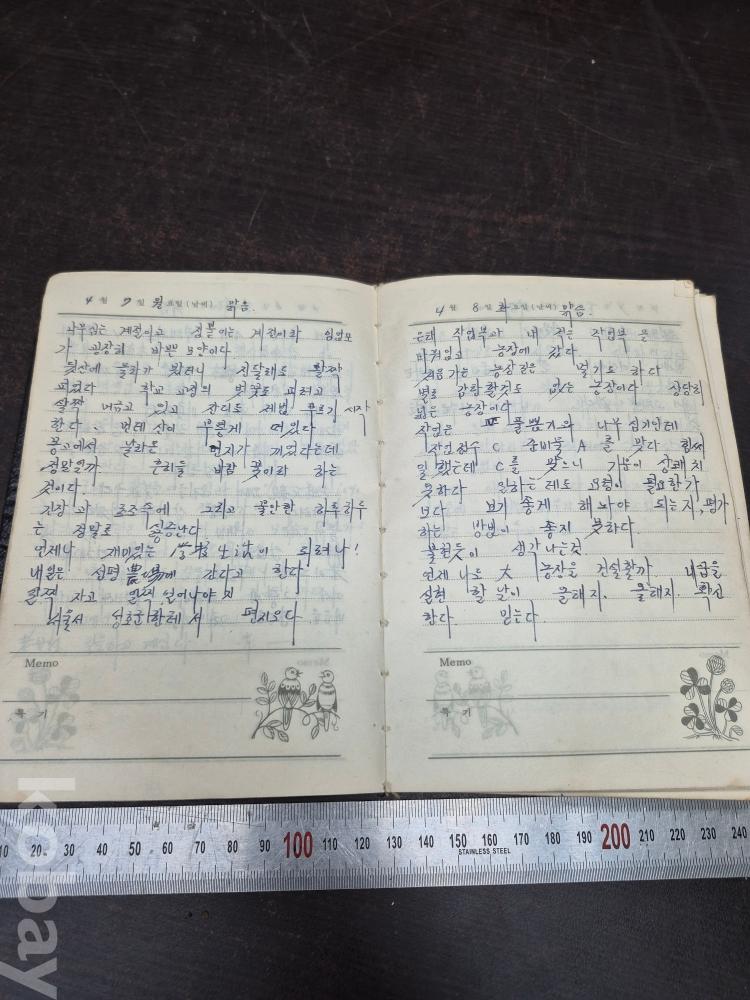 4 월 7 일 월 요일 (날씨) 맑음.
나무심는 계절이고 접붙이는 계절이라 임업모
가 굉장히 바쁜 모양이다
뒷산에 들화가 폈더니 진달래도 활짝
피었다 학교 교정의 벚꽃도 피려고
살짝 머금고 있고 잔디도 제법 푸르기 시작
한다. 먼데 산이 뿌옇게 떠있다
몽고에서 날라온 먼지가 끼었다는데
정말일까. 흔히들 바람 꽃이라 하는
것이다.
긴장과 초조속에 그리고 불안한 하루하루
는 정말로 싫증난다
언제나 재미있는 学校生活이 되려나!
내일은 성평 農場에 간다고 한다
일찍 자고 일찍 일어나야 지
서울서 성호한테서 편지오다
Memo
특 기
4 월 8 일 화 요일 (날씨) 맑음.
은래 작업복과 내 적은 작업복을
바꿔입고 농장에 갔다
처음 가는 농장길은 멀기도 하다
별로 감탄할것도 없는 농장이다 상당히
넓은 농장이다
작업은 풀뽑기와 나무 심기인데
작업점수 C 준비물 A 를 맞다 힘써
일했는데 C를 맞으니 기분이 상쾌치
못하다 일하는데도 요령이 필요한가
보다 보기 좋게 해 놔야 되는지, 평가
하는 방법이 좋지 못하다.
불현듯이 생각나는것
언제 나도 大 농장을 건설할까
실현 할 날이 올테지. 올테지. 확신
한다 믿는다
Memo
특 기
10 20 30 40 50 60 70 80 90 100 110 120 130 140 150 160 170 180 190 200 210 220 230 240
STAINLESS STEEL
kobay